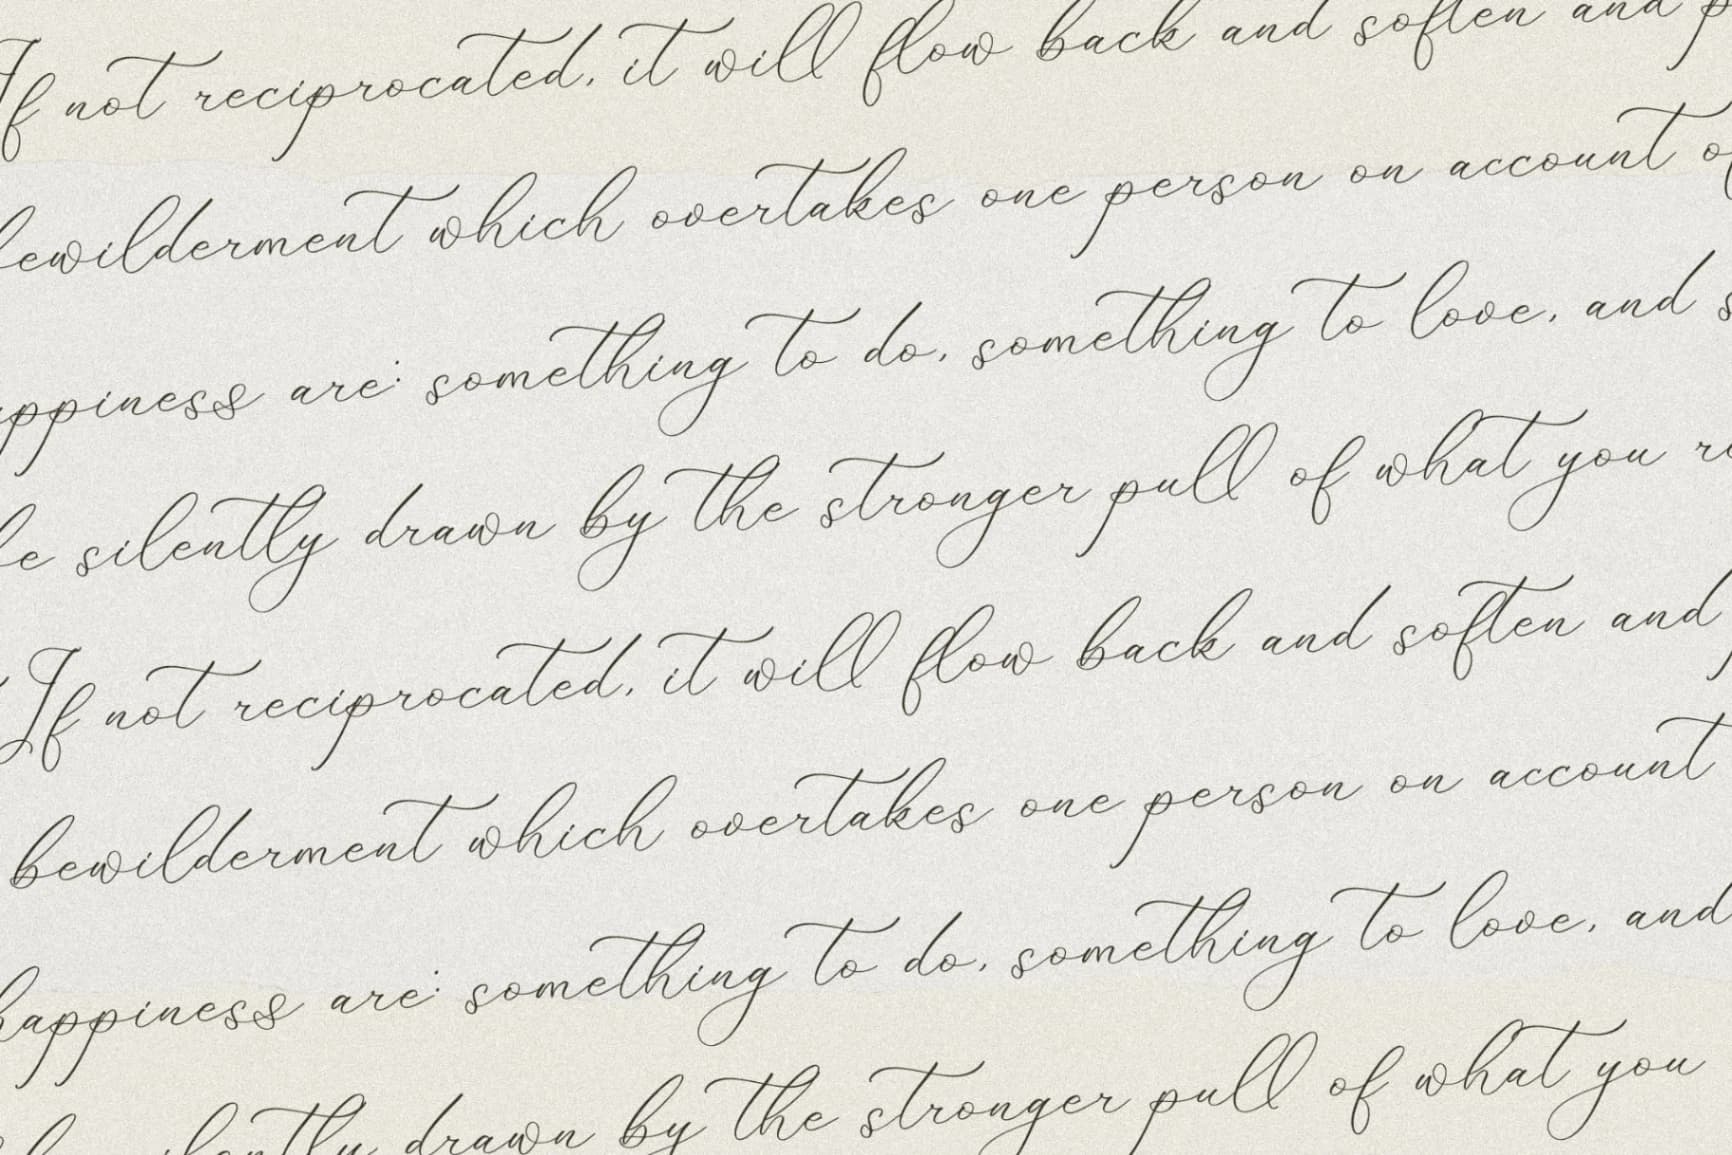 If not reciprocated, it will flow back and soften and
bewilderment which overtakes one person on account of
happiness are: something to do, something to love, and
be silently drawn by the stronger pull of what you
If not reciprocated, it will flow back and soften and
bewilderment which overtakes one person on account
happiness are: something to do, something to love, and
silently drawn by the stronger pull of what you